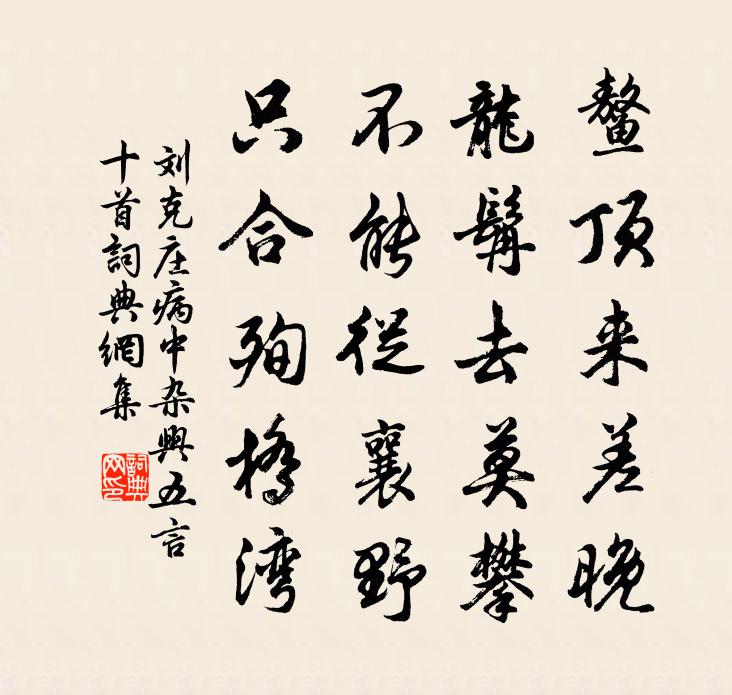 鳌顶来差晚
龍髯去莫攀
不能從襄野
只合殉橋湾
刘克庄病中杂興五言
十首詞典網集
詞典网印